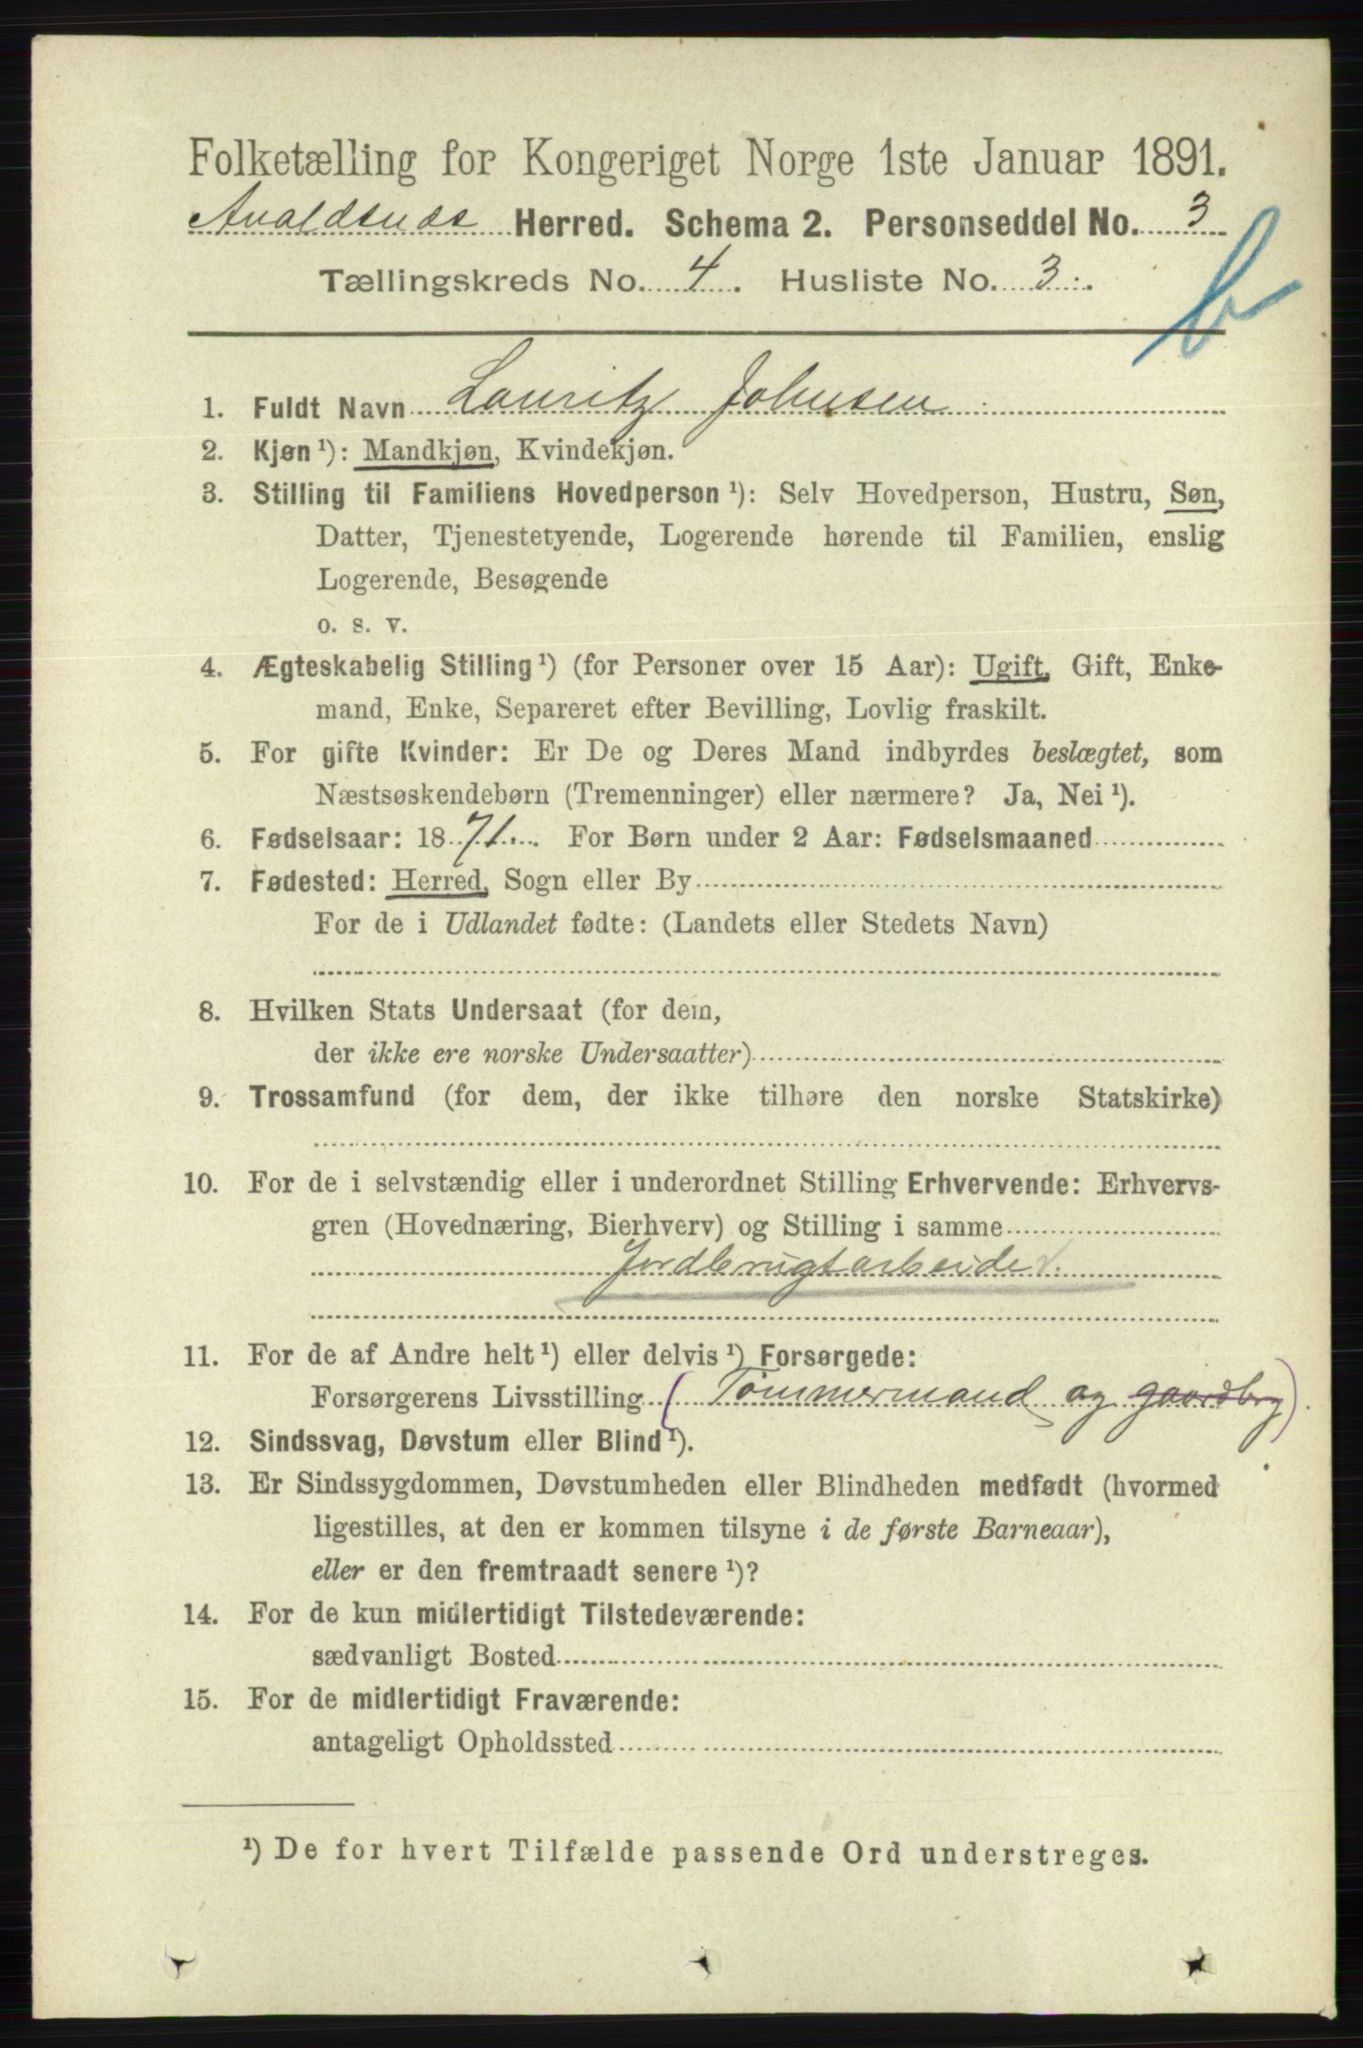 Folketælling for Kongeriget Norge 1ste Januar 1891.
Avaldsnes Herred. Schema 2. Personseddel No. 3
Tællingskreds No. 4. Husliste No. 3.
b
1. Fuldt Navn Lauritz Johnsen
2. Kjøn ¹): Mandkjøn, Kvindekjøn.
3. Stilling til Familiens Hovedperson ¹): Selv Hovedperson, Hustru, Søn,
Datter, Tjenestetyende, Logerende hørende til Familien, enslig
Logerende, Besøgende
o. s. v.
4. Ægteskabelig Stilling ¹) (for Personer over 15 Aar): Ugift, Gift, Enke-
mand, Enke, Separeret efter Bevilling, Lovlig fraskilt.
5. For gifte Kvinder: Er De og Deres Mand indbyrdes beslægtet, som
Næstsøskendebørn (Tremenninger) eller nærmere? Ja, Nei ¹).
6. Fødselsaar: 1871. For Børn under 2 Aar: Fødselsmaaned
7. Fødested: Herred, Sogn eller By
For de i Udlandet fødte: (Landets eller Stedets Navn)
8. Hvilken Stats Undersaat (for dem,
der ikke ere norske Undersaatter)
9. Trossamfund (for dem, der ikke tilhøre den norske Statskirke)
10. For de i selvstændig eller i underordnet Stilling Erhvervende: Erhvervs-
gren (Hovednæring, Bierhverv) og Stilling i samme
Jordbrugtarbeider.
11. For de af Andre helt ¹) eller delvis ¹) Forsørgede:
Forsørgerens Livsstilling (Tømmermand og gaardbrg)
12. Sindssvag, Døvstum eller Blind ¹).
13. Er Sindssygdommen, Døvstumheden eller Blindheden medfødt (hvormed
ligestilles, at den er kommen tilsyne i de første Barneaar),
eller er den fremtraadt senere ¹)?
14. For de kun midlertidigt Tilstedeværende:
sædvanligt Bosted
15. For de midlertidigt Fraværende:
antageligt Opholdssted
¹) De for hvert Tilfælde passende Ord understreges.